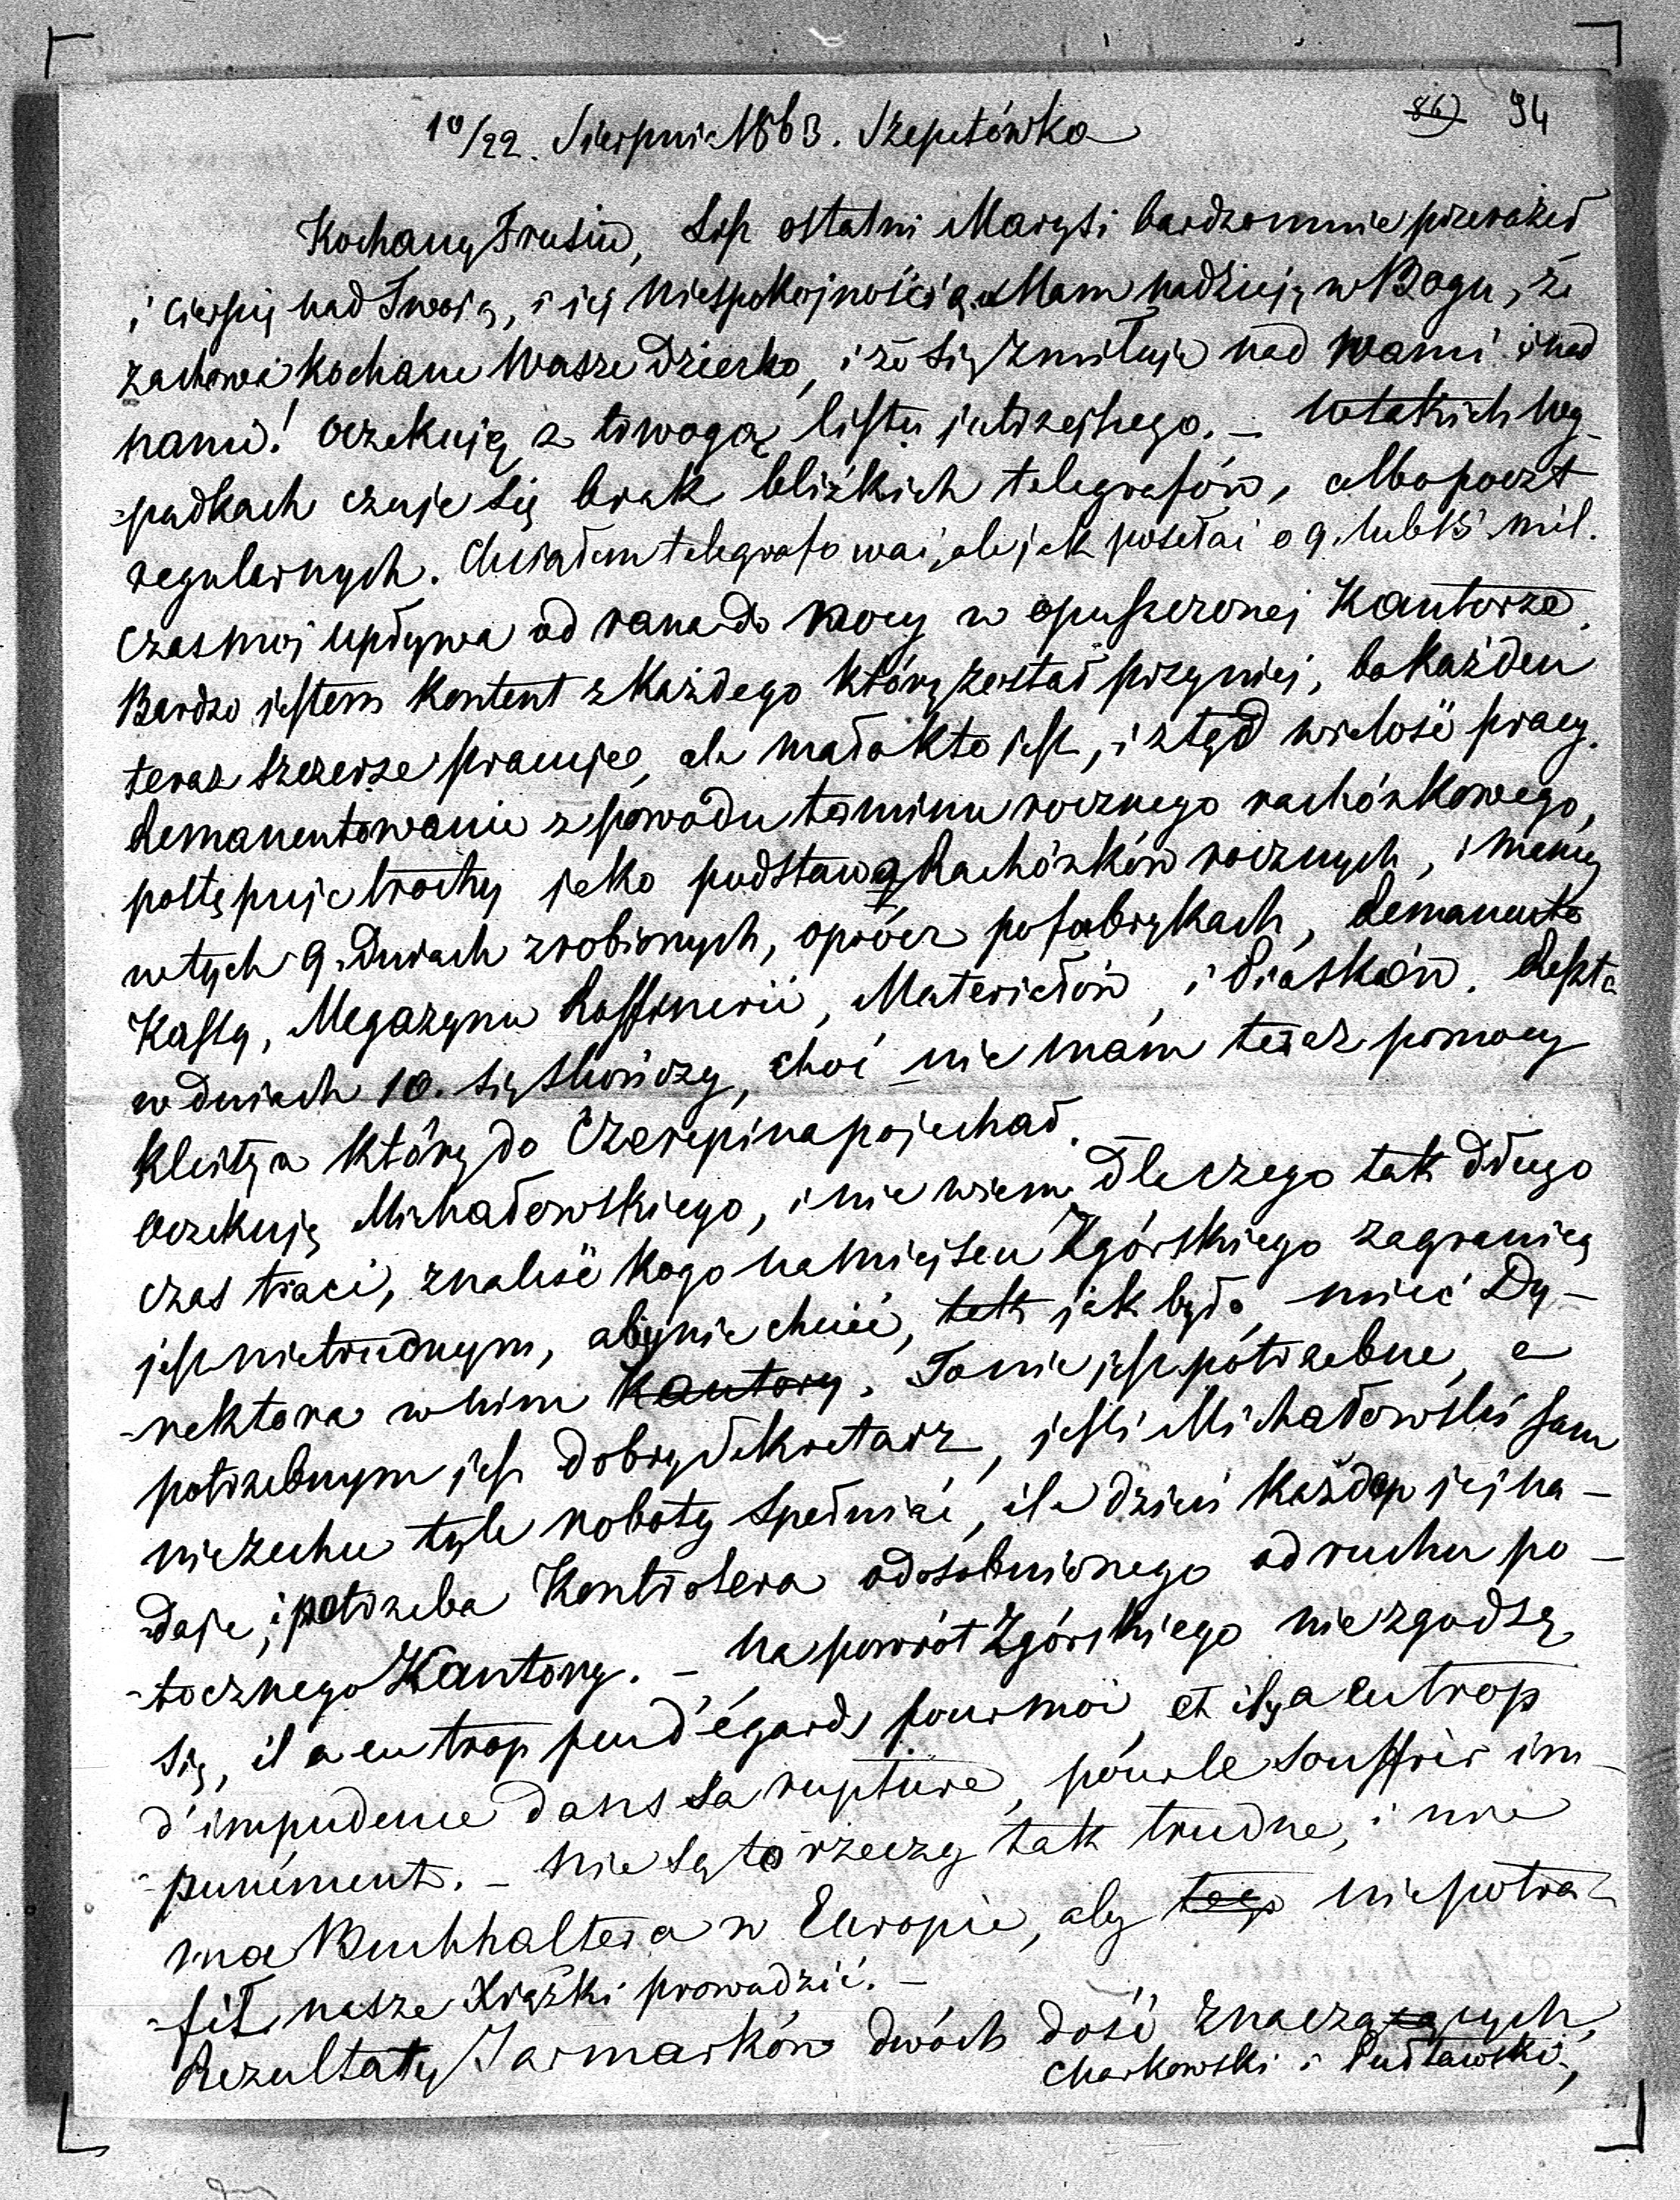 86) 94
10/22. Sierpnia 1863. Szepetówka
Kochany Frusiu, List ostatni Marysi bardzo mnie przeraził
i cierpię nad Twoią, i iéj niespokojnością. Mam nadzieję w Bogu, że
zachowa kochane Wasze Dziecko, i że się zmiłuje nad Wami i nad
nami! Oczekuję z trwogą listu jutrzejszego. – W takich wy-
-padkach czuje się brak blizkich telegrafów, albo poczt
regularnych. Chciałem telegrafować, ale jak posełać o 9. lub 8 mil.
Czas mój upływa od rana do nocy w opuszczonej Kantorze.
Bardzo jestem kontent z każdego który został przy niej, bo każden
teraz szczerze pracuje, ale mało kto jest, i ztąd wielość pracy.
Remanentowanie z powodu terminu rocznego rachónkowego,
postępuje trochę jako podstawa Rachónków rocznych, i mamy
w tych 9. Dniach zrobionych, oprócz po fabrykach, Remanenta
Kassy, Magazynu Raffinerii, Materiałów, i Piasków. Reszta
w dniach 10. się skończy, choć nie mam teraz pomocy
który do Czerepina pojechał.
Oczekuję Michałowskiego, i nie wiem Dla czego tak długo
czas traci, znaleść kogo na miejscu Zgórskiego zagranicą
jest nietrudnym, aby nie chcieć, tak jak było, mieć Dy-
-rektora w nim Kantory. To nie jest potrzebne, a
potrzebnym jest dobry Sekretarz, jeśli Michałowski sam
nie zechce tyle roboty spełniać, ile dziś każden jej na-
daje, i potrzeba Kontrolera odosobnionego od ruchu po-
-tocznego Kantory. – Na powrót Zgórskiego nie zgodzę
się, il a eu trop peu d'égards pour moi, et il y a eu trop
d'impudence dans sa rupture, pour le souffrir im-
-punément. – Nie są to rzeczy tak trudne, i nie
ma Buchhaltera w Europie, aby tego nie potra-
-fił nasze Xiążki prowadzić. –
Rezultaty Jarmarków dwóch dość znaczących,
Charkowski i Pułtawski,